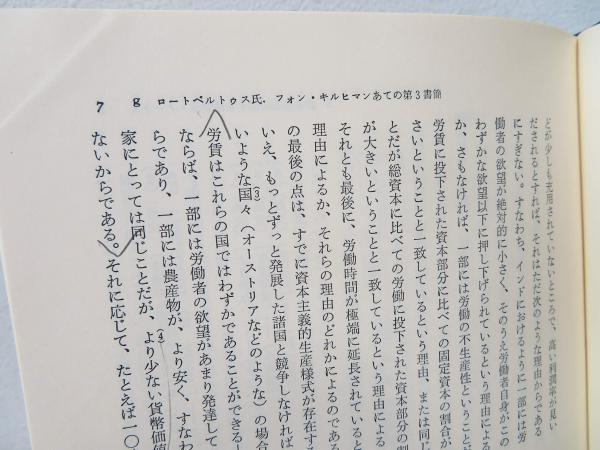 7　g　ロートベルトゥス氏．フォン・キルヒマンあての第3書簡
どが少しも充用されていないところで、高い利潤率が見い
だされるとすれば、それはただ次のような理由からである
にすぎない。すなわち、インドにおけるように一部には労
働者の欲望が絶対的に小さく、そのうえ労働者自身がこの
わずかな欲望以下に押し下げられているという理由による
か、さもなければ、一部には労働の不生産性ということが
労賃に投下された資本部分に比べての固定資本の割合が
さいということと一致しているという理由、または同じ
とだが総資本に比べての労働に投下された資本部分の割
が大きいということと一致しているという理由による
それとも最後に、労働時間が極端に延長されていると
理由によるか、それらの理由のどれかによるのである
の最後の点は、すでに資本主義的生産様式が存在する
いえ、もっとずっと発展した諸国と競争しなければ
いような国々(3)（オーストリアなどのような）の場合
労賃はこれらの国ではわずかであることができる
ならば、一部には労働者の欲望があまり発達して
らであり、一部には農産物が、より安く、すなわ
家にとっては同じことだが、(4)より少ない貨幣価値
ないからである。それに応じて、たとえば一〇